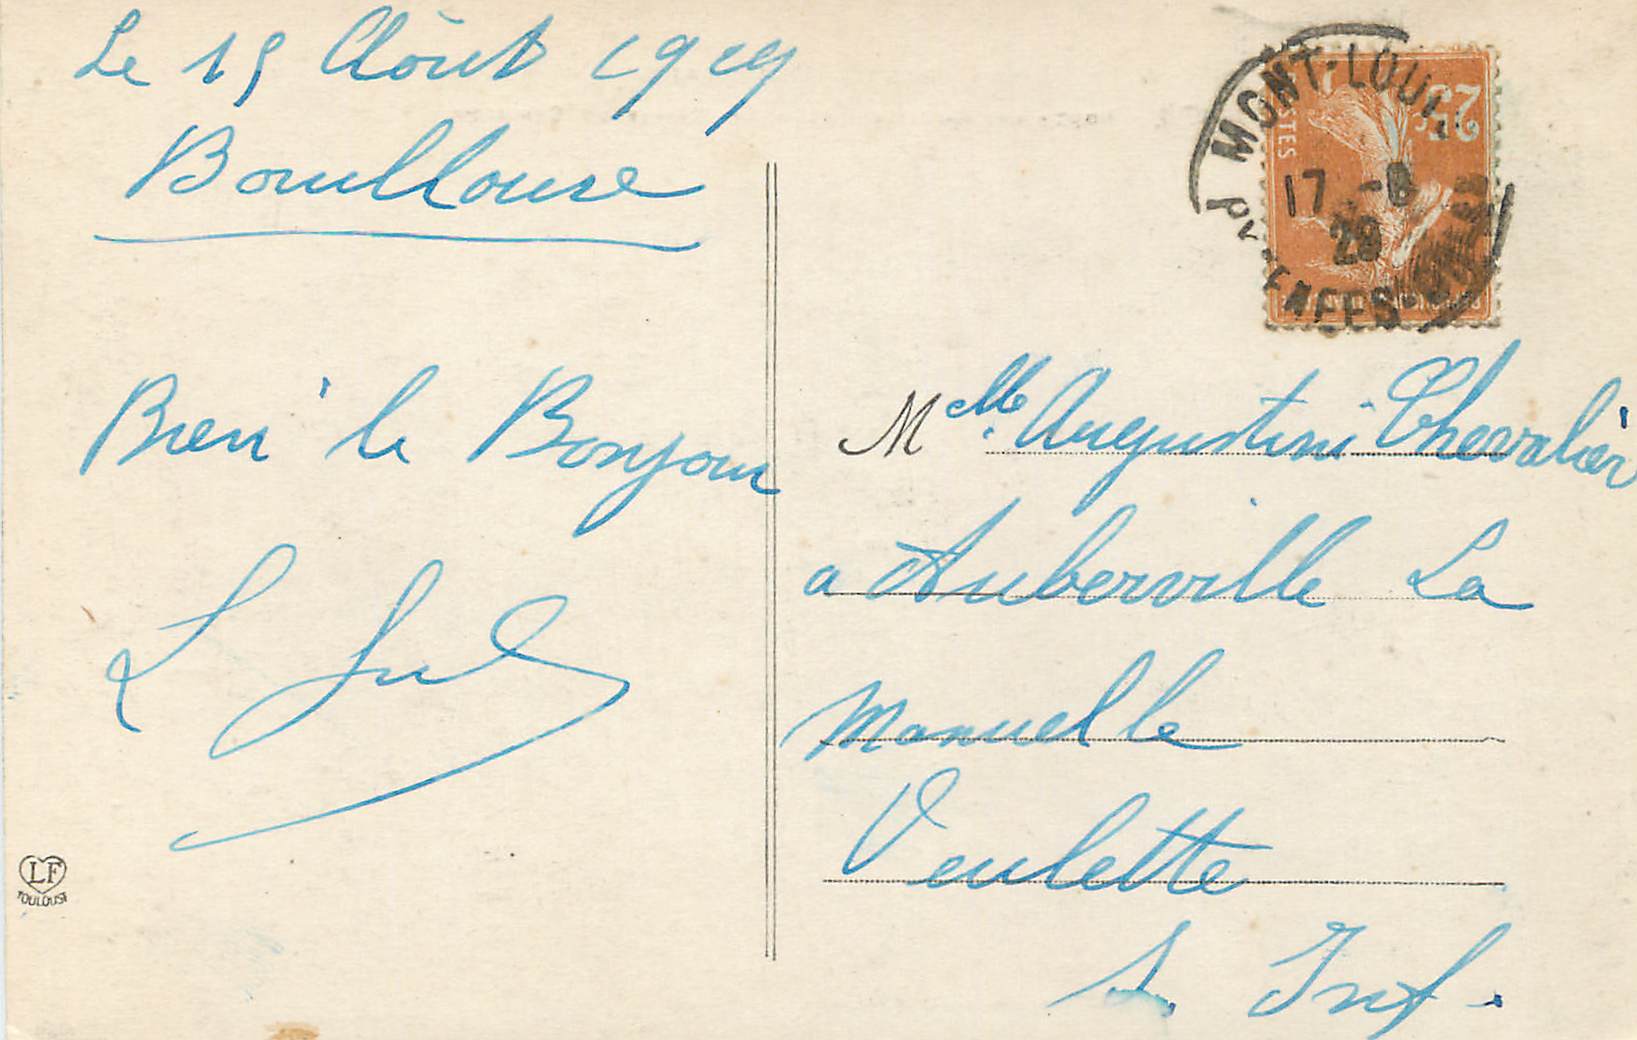 Le 15 Août 1929
Bouillouse
Bien le Bonjour
MONT-LOUIS
17 -8
29
PYRENEES-
25c
POSTES
Melle Augustine Chevalier
a Auberville La
Manuelle
Veulette
S. Inf.
LF
TOULOUSE